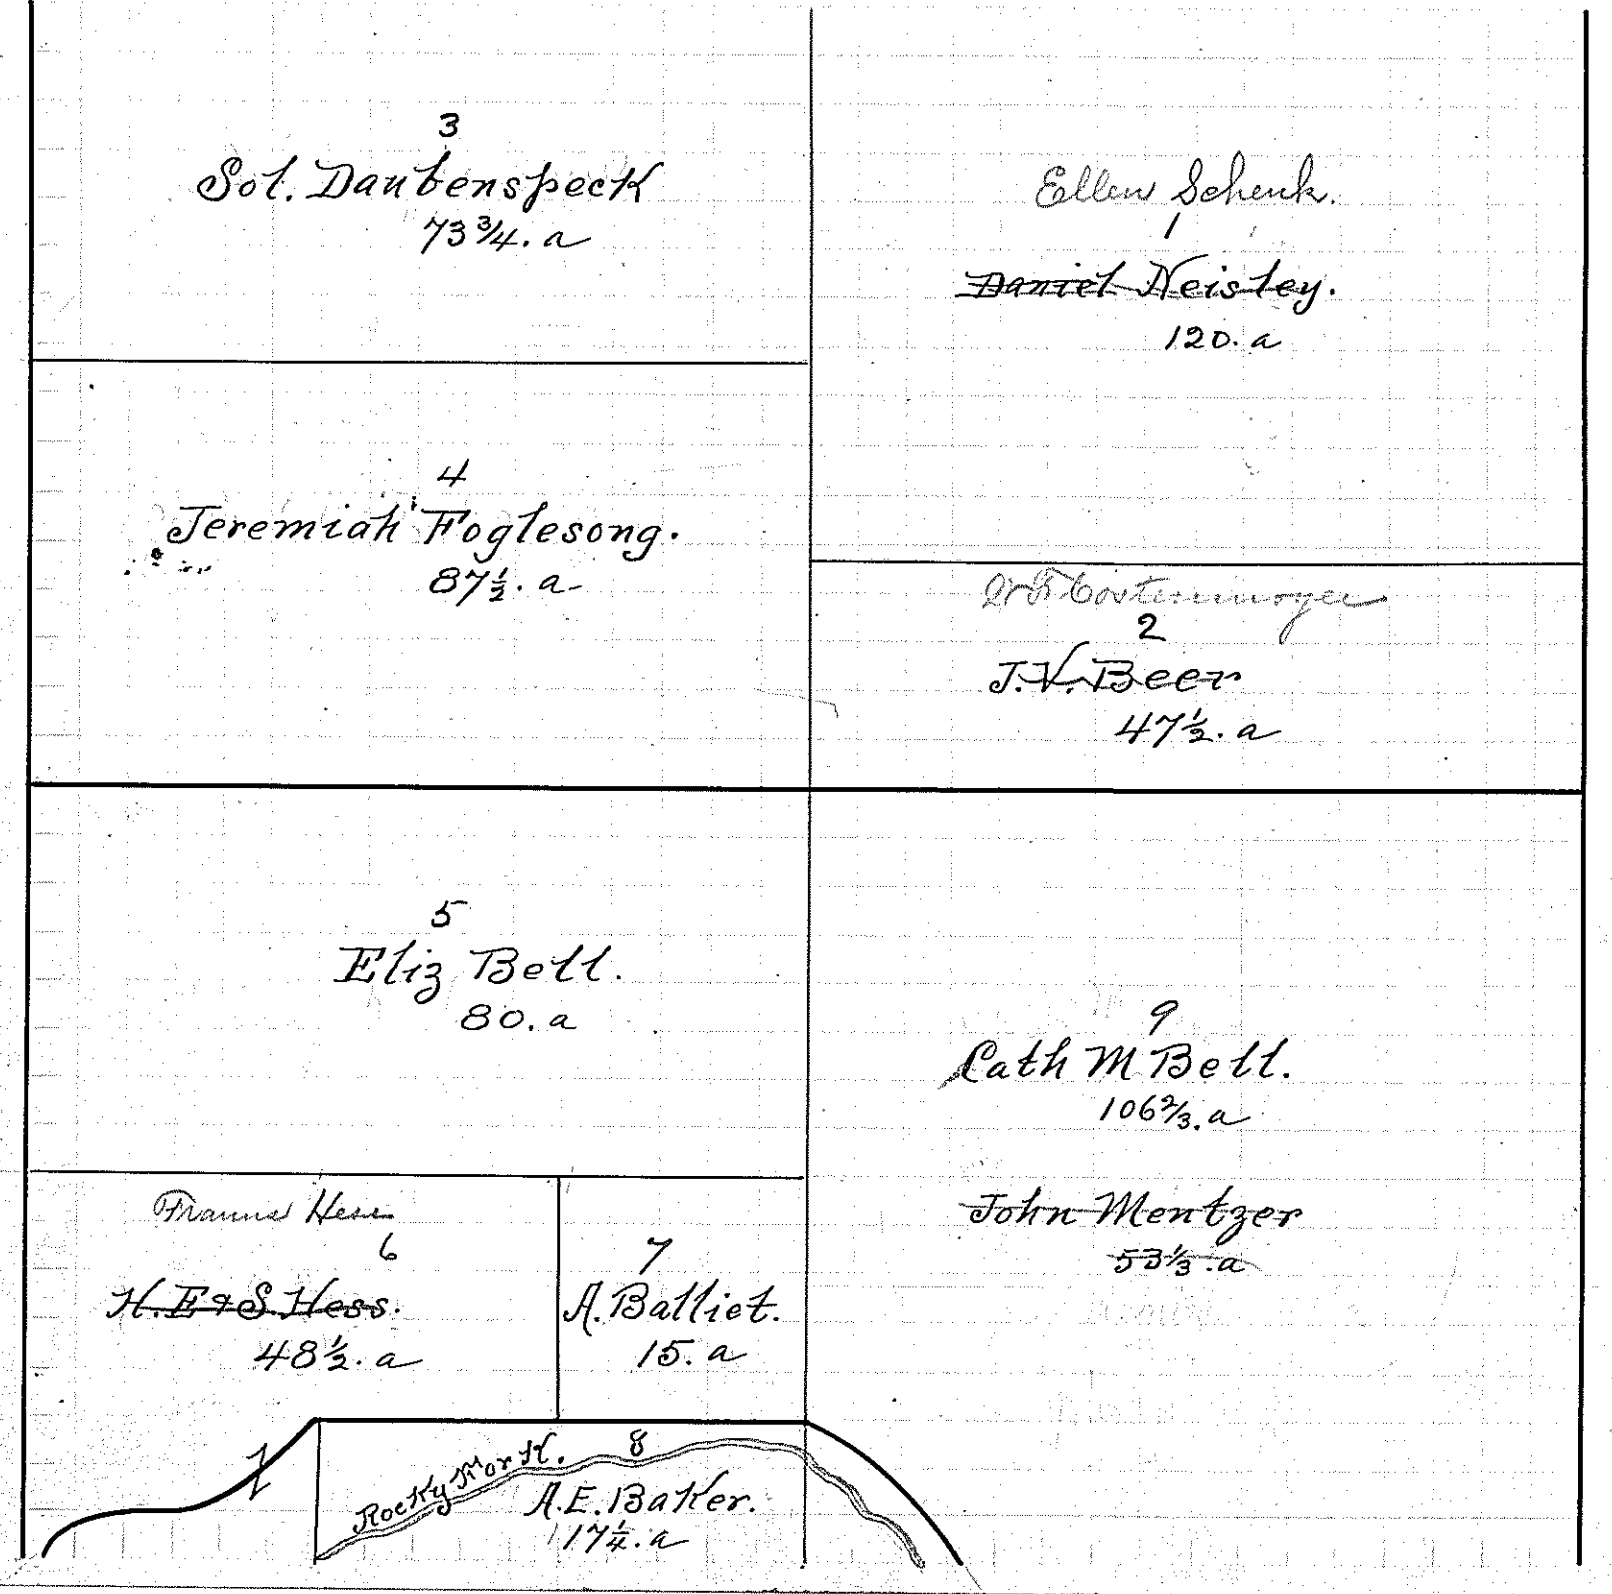 3
Sol. Daubenspeck
73 3/4. a
Ellen Schenk.
1
Daniel Neisley.
120. a
4
Jeremiah Foglesong.
87 1/2. a
2
J. V. Beer
47 1/2. a
5
Eliz Bell.
80. a
9
Cath M Bell.
106 2/3. a
John Mentzer
53 1/3. a
Hess
6
H. E & S. Hess.
48 1/2. a
7
A. Balliet.
15. a
Rocky Fork.
8
A. E. Baker.
17 1/4. a